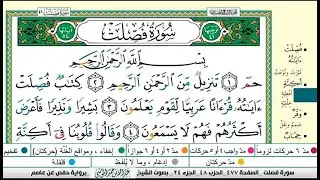 سُورَةُ فُصِّلَتْ
بِسْمِ اللَّهِ الرَّحْمَٰنِ الرَّحِيمِ
حمٓ ١ تَنزِيلٌ مِّنَ الرَّحْمَٰنِ الرَّحِيمِ ٢ كِتَٰبٌ فُصِّلَتْ
ءَايَٰتُهُۥ قُرْءَانًا عَرَبِيًّا لِّقَوْمٍ يَعْلَمُونَ ٣ بَشِيرًا وَنَذِيرًا فَأَعْرَضَ
أَكْثَرُهُمْ فَهُمْ لَا يَسْمَعُونَ ٤ وَقَالُوا۟ قُلُوبُنَا فِىٓ أَكِنَّةٍ
فُصِّلَتْ
ءَايَٰتُهُۥ
مد ٦ حركات لزوماً
مد واجب ٤ أو ٥ حركات
إخفاء ، ومواقع الغنة (حركتان)
تفخيم
مد حركتان
إدغام ، وما لا يُلفظ
قلقلة
سورة فصلت - الصفحة ٤٧٧ - الحزب ٤٨ - الجزء ٢٤ - بصوت الشيخ
برواية حفص عن عاصم